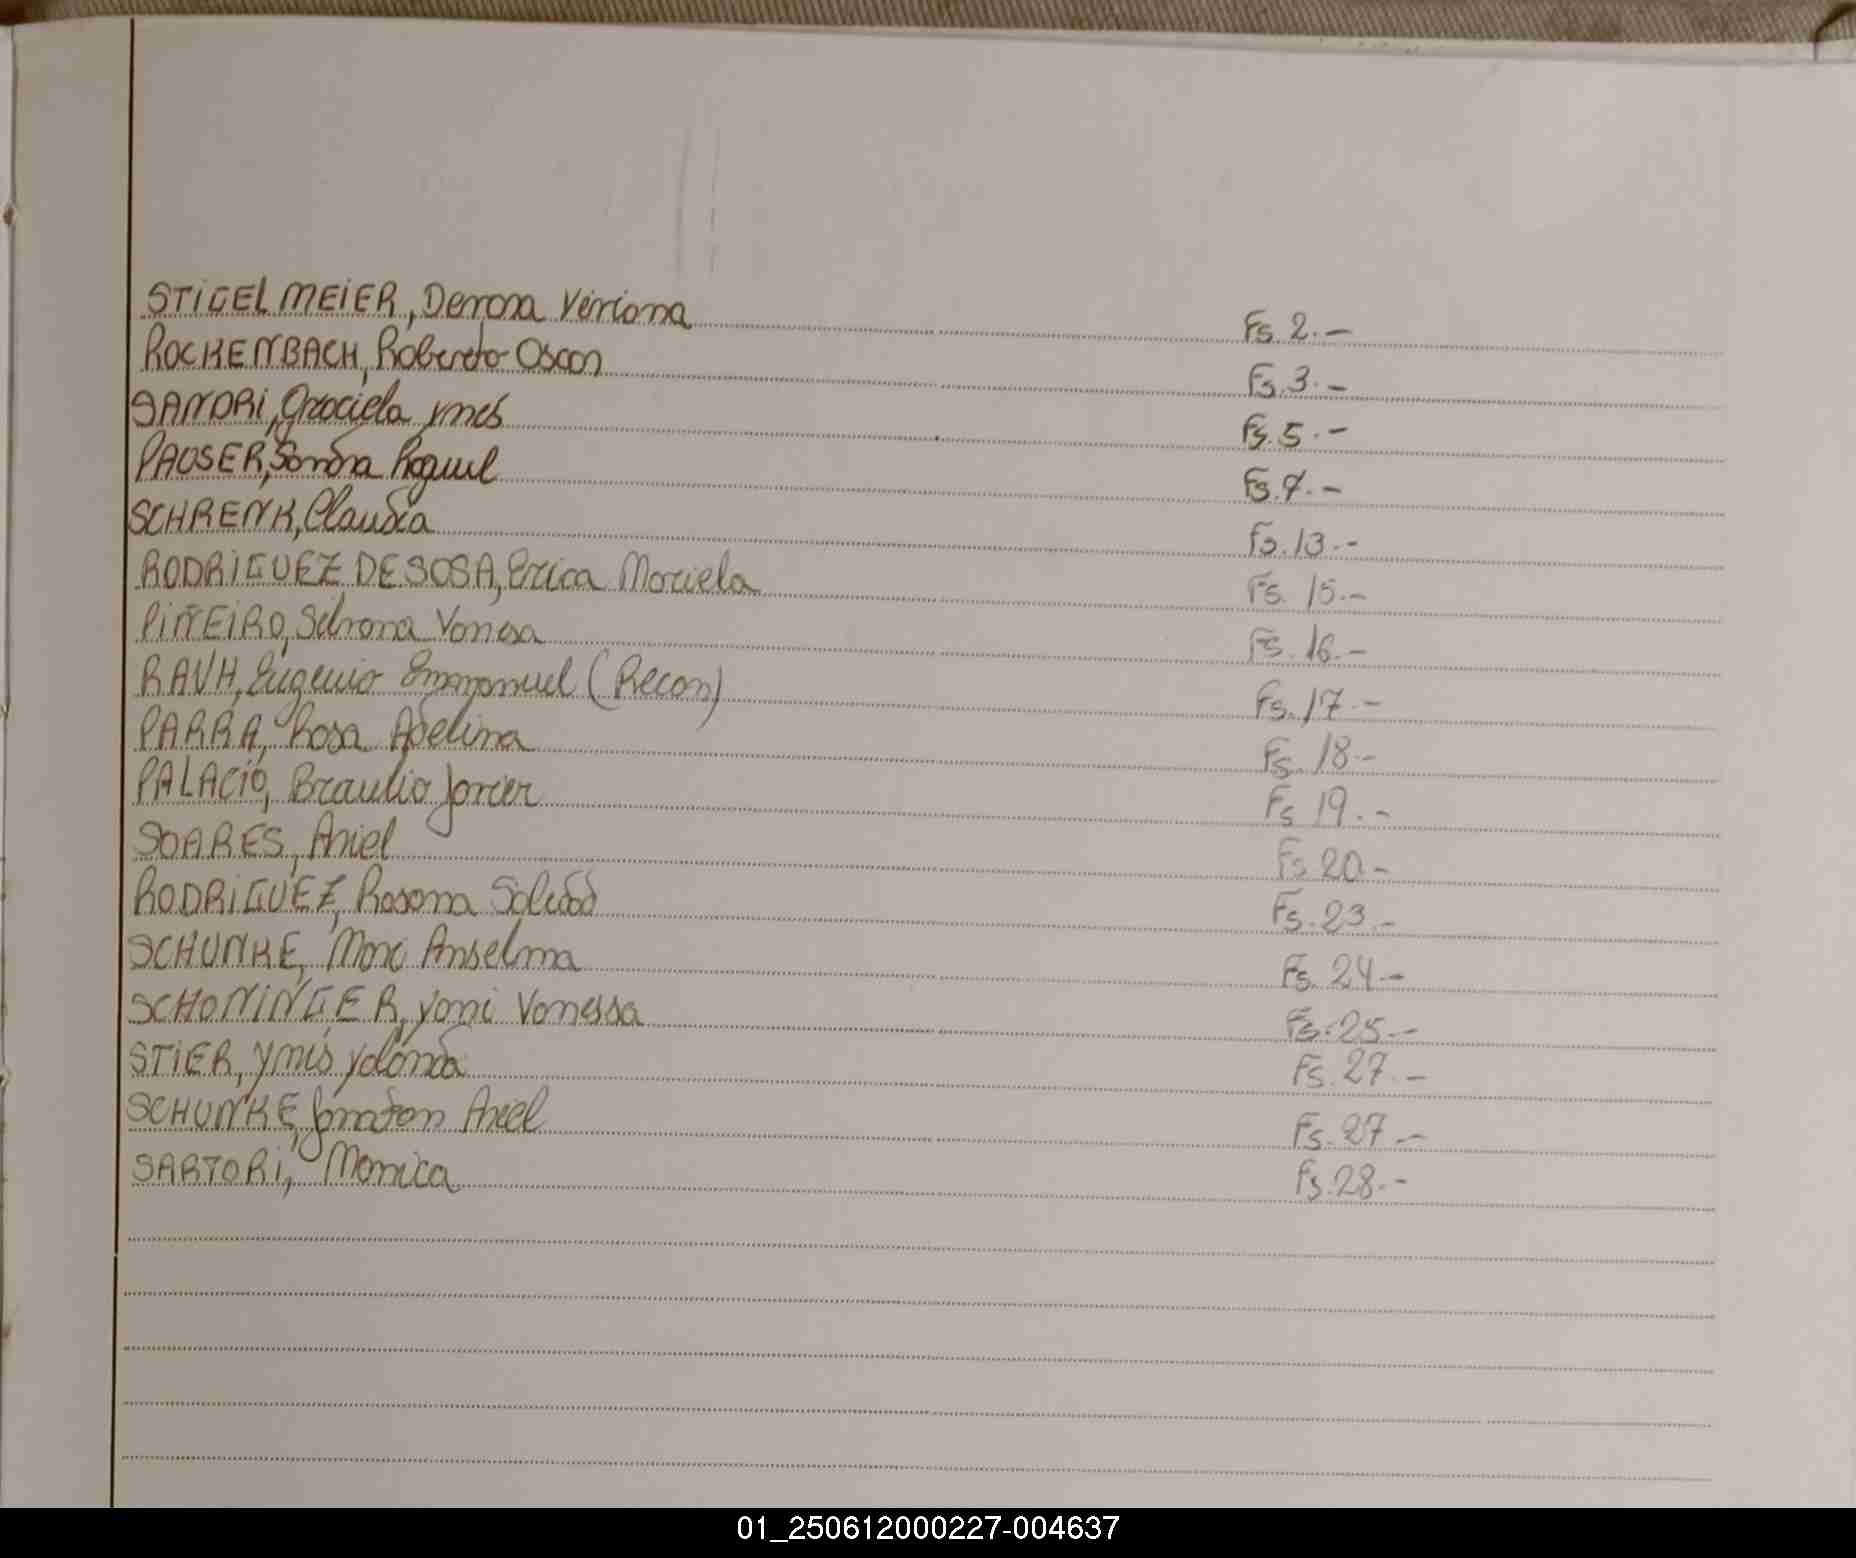 STIGELMEIER, Derona Viviana Fs. 2.-
ROCKENBACH, Roberto Oscar Fs. 3.-
SANDRI, Graciela Ynés Fs. 5.-
PAUSER, Sandra Raquel Fs. 7.-
SCHRENK, Claudia Fs. 13.-
RODRIGUEZ DE SOSA, Erica Mariela Fs. 15.-
PIÑEIRO, Silvana Vanesa Fs. 16.-
RAUH, Eugenio Emmanuel (Recon) Fs. 17.-
PARRA, Rosa Adelina Fs. 18.-
PALACIO, Braulio Javier Fs 19.-
SOARES, Ariel Fs 20.-
RODRIGUEZ, Rosana Soledad Fs. 23.-
SCHUNKE, Marc Anselma Fs. 24.-
SCHONINGER, Yani Vanessa Fs. 25.-
STIER, Ynis Yolanda Fs. 27.-
SCHUNKE, Jonatan Axel Fs. 27.-
SARTORI, Monica Fs. 28.-
01_250612000227-004637